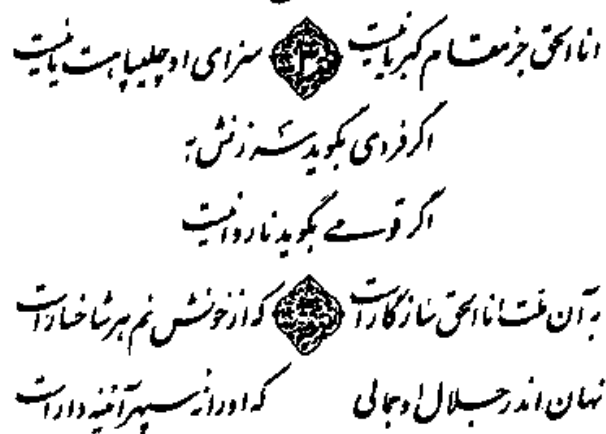 اناالحق جز مقام کبریا نیست سزای او چلیپا هست یا نیست
اگر فردی بگوید سرزنش بہ
اگر قومے بگوید ناروا نیست
بہ آن ملت اناالحق سازگار است کہ از خونش نم ہر شاخسار است
نہان اندر جلال او جمالی کہ او را نہ سپہر آئینہ دار است